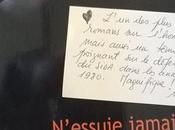 L'un des plus
romans sur l'hom
mais aussi un témo
poignant sur le début
du SIDA dans les anné
1980.
Magnifique
N'essuie jamai